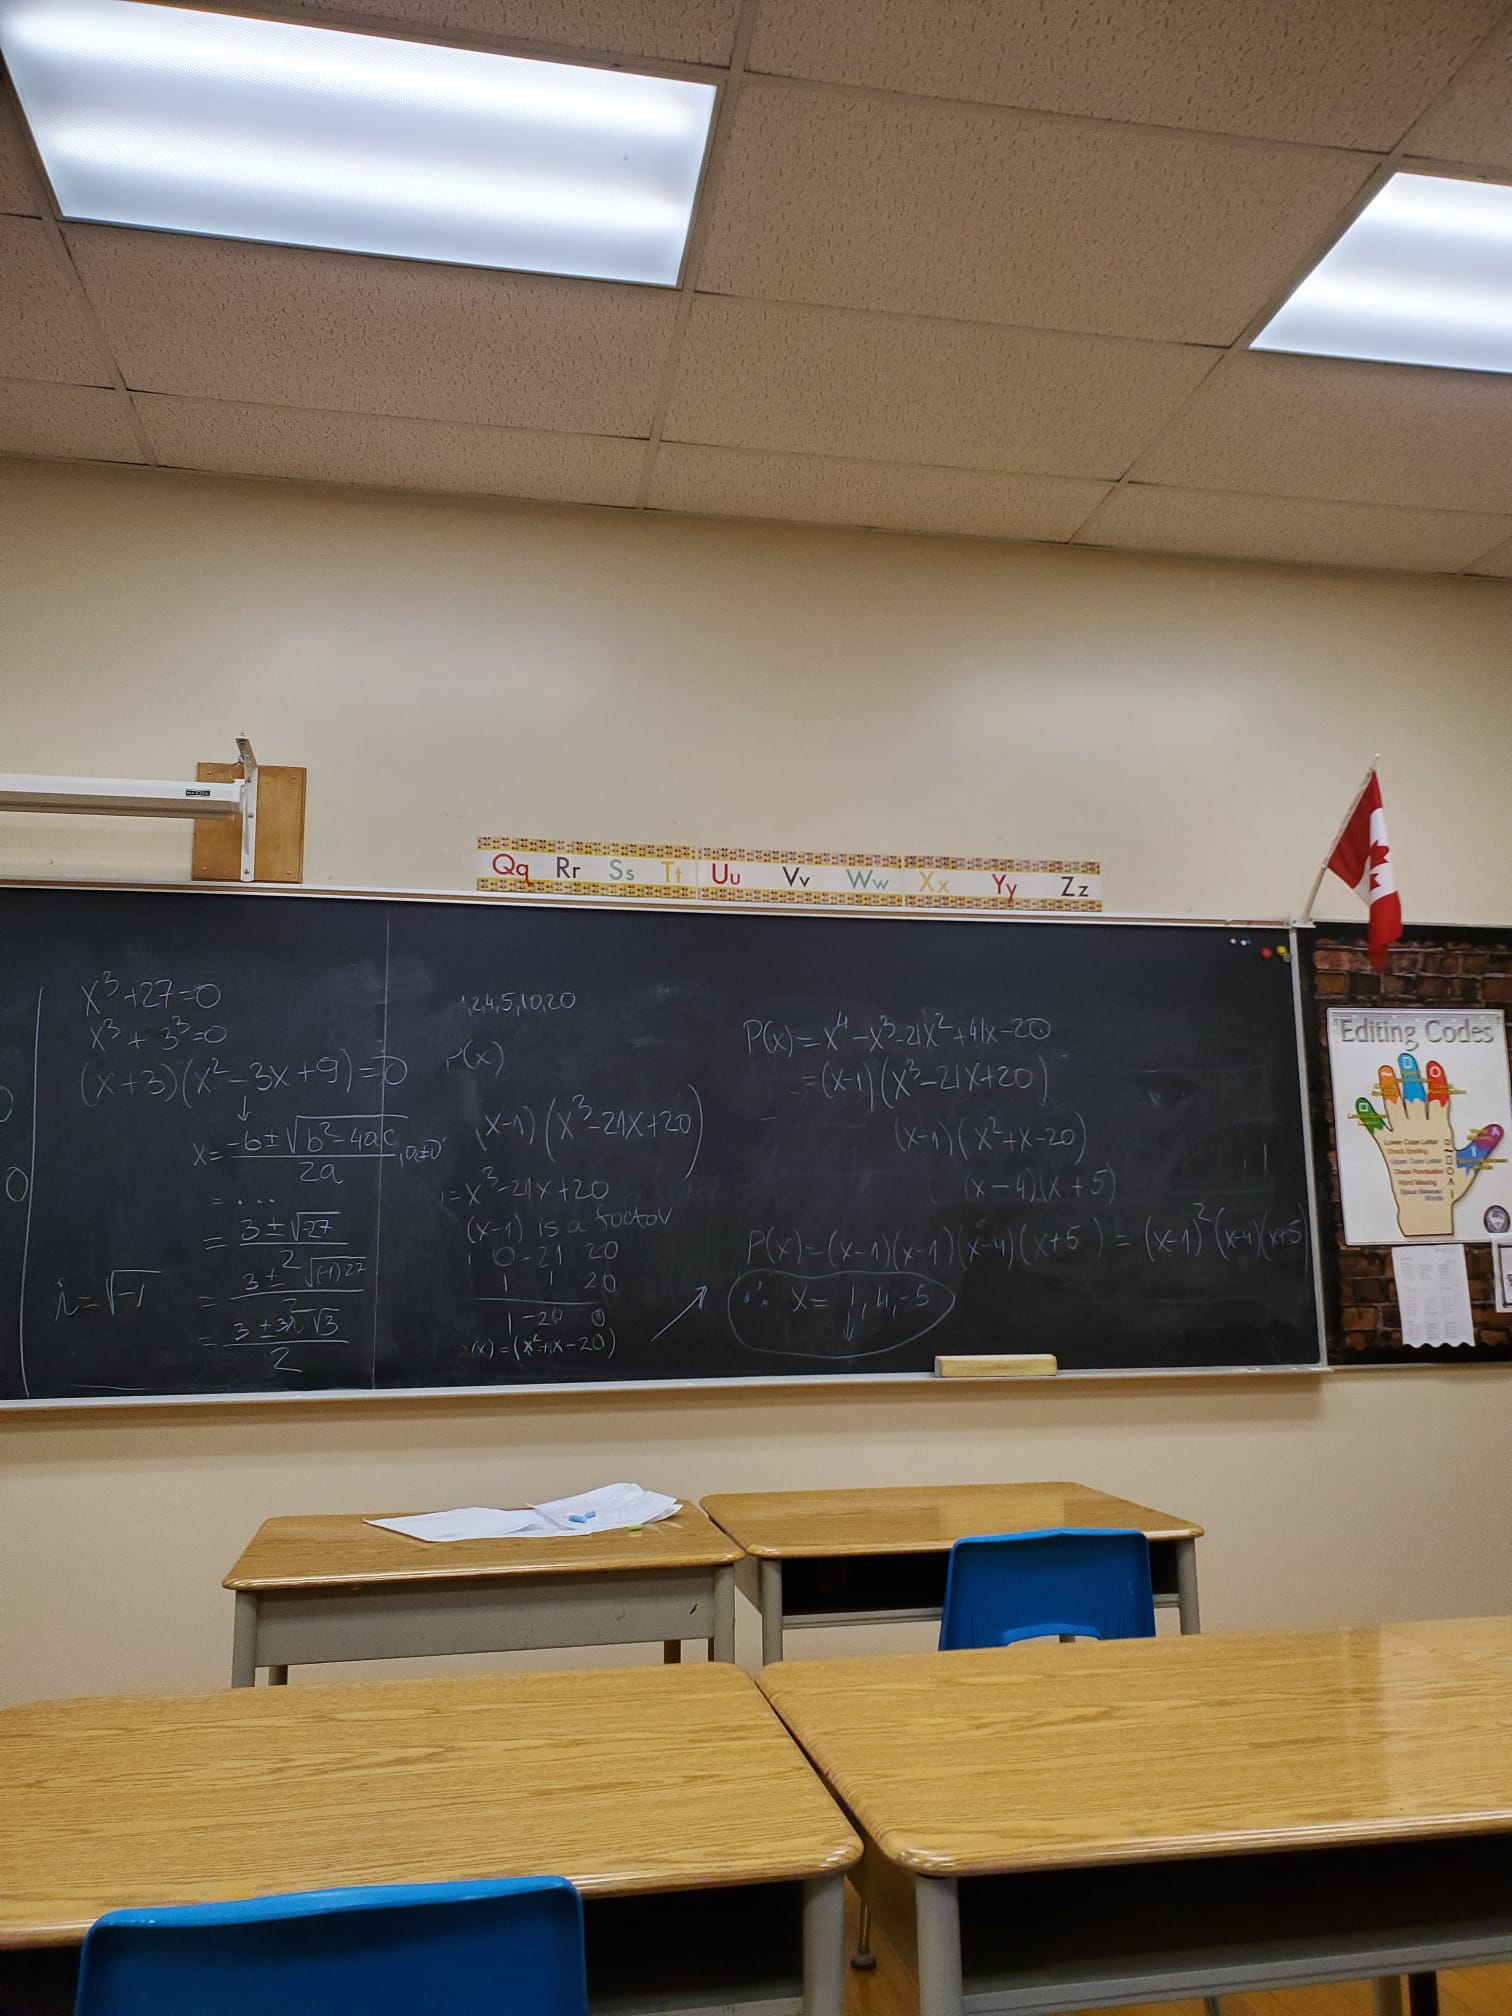 Qq Rr Ss Tt Uu Vv Ww Xx Yy Zz
x³+27=0
x³+3³=0
(x+3)(x²-3x+9)=0
↓
x=-b±√b²-4ac/2a, a≠0
=...
=3±√-27/2
i=√-1
=3±√(-1)27/2
=3±3i√3/2
1,2,4,5,10,20
(x)
(x-1)(x³-21x+20)
=x³-21x+20
(x-1) is a factor
1 0 -21 20
1 1 20
1 -20 0
(x)=(x²+x-20)
P(x)=x⁴-x³-21x²+41x-20
=(x-1)(x³-21x+20)
(x-1)(x²+x-20)
(x-4)(x+5)
P(x)=(x-1)(x-1)(x-4)(x+5)=(x-1)²(x-4)(x+5)
∴ x=1,4,-5
Editing Codes
Lower Case Letter
Check Spelling
Upper Case Letter
Check Punctuation
Word Missing
Space Between
Words